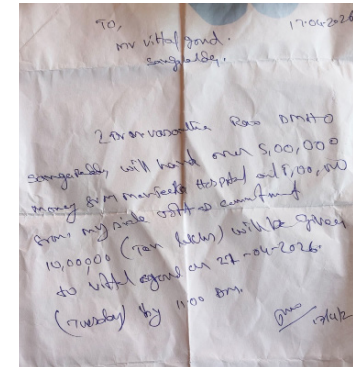 To, 17-04-2026
Mr Vittal goud.
Sangareddy.
I Dr Vasantha Rao DMHO
Sangareddy, will hand over 5,00,000
money from Hospital and 5,00,000
from my side commitment
10,00,000 (Ten lakhs) will be given
to Vittal goud on 21-04-2026.
(Tuesday) by 11:00 Am.